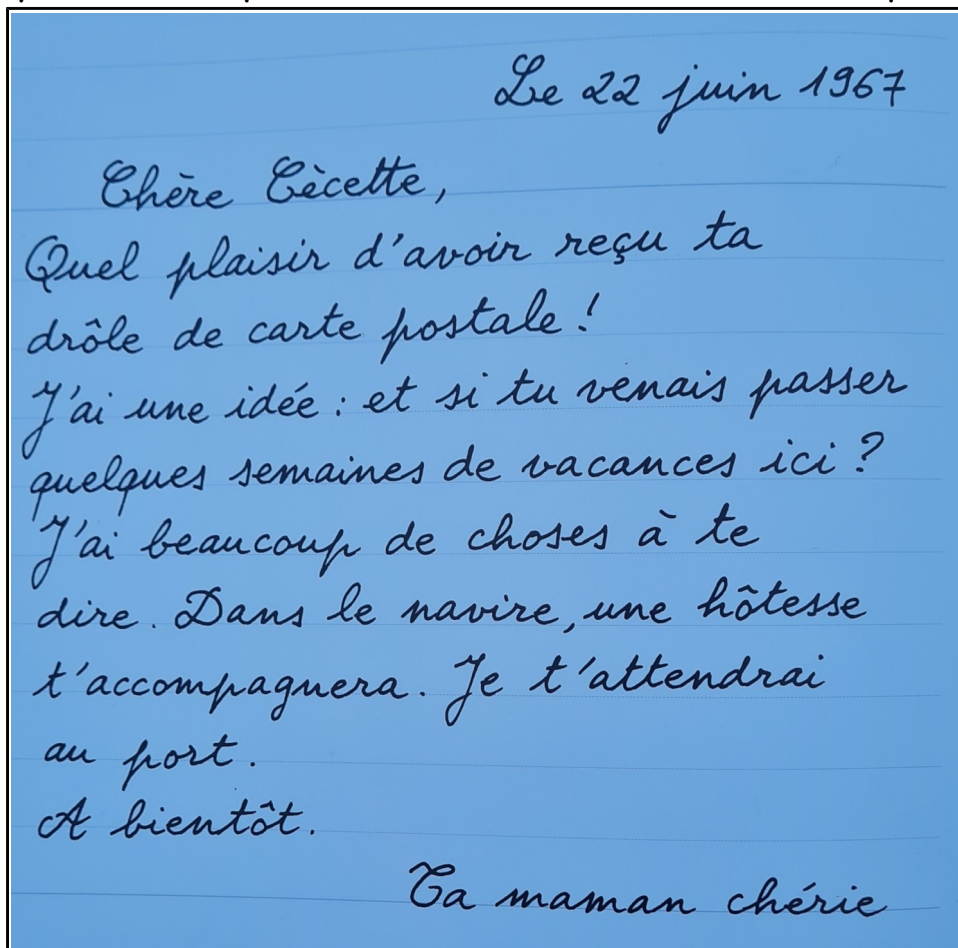 Le 22 juin 1967
Chère Cècette,
Quel plaisir d'avoir reçu ta
drôle de carte postale !
J'ai une idée : et si tu venais passer
quelques semaines de vacances ici ?
J'ai beaucoup de choses à te
dire. Dans le navire, une hôtesse
t'accompagnera. Je t'attendrai
au port.
A bientôt.
Ta maman chérie